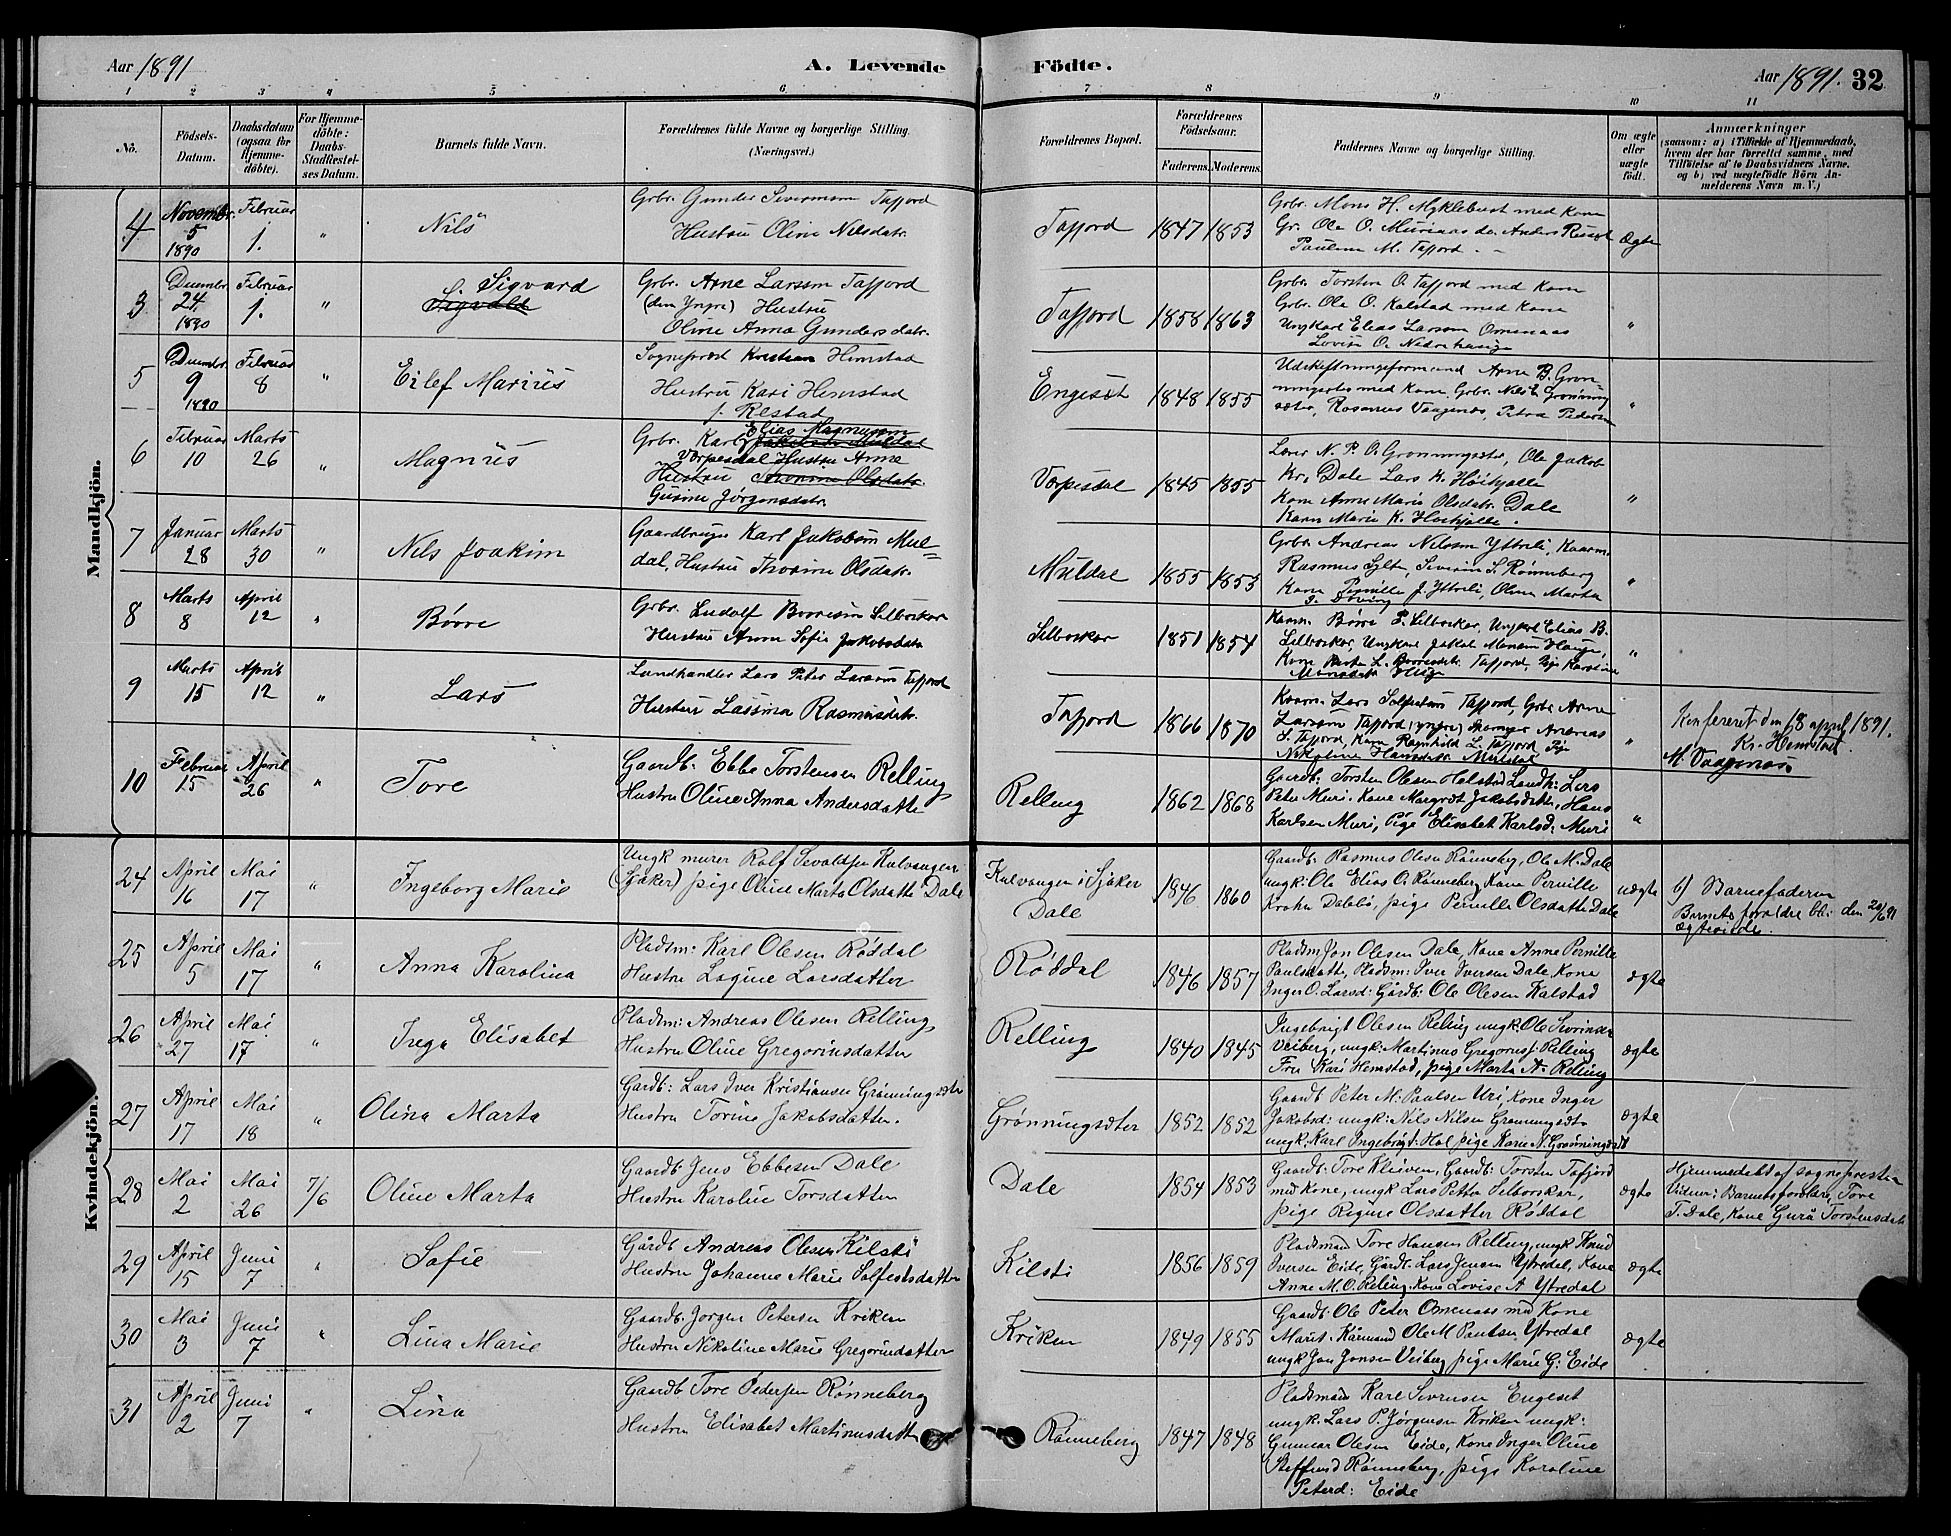 Aar 1891
A. Levende Födte.
Aar 1891. 32
1 2 3 4 5 6 7 8 9 10 11
No.
Födsels-
Datum.
Daabsdatum
(ogsaa for
Hjemme-
döbte).
For Hjemme-
döbte:
Daabs-
Stadfæstel-
ses Datum.
Barnets fulde Navn.
Forældrenes fulde Navne og borgerlige Stilling.
(Næringsvei.)
Forældrenes Bopæl.
Forældrenes
Födselsaar.
Faderens. Moderens.
Faddernes Navne og borgerlige Stilling.
Om ægte
eller
uægte
födt.
Anmærkninger
(saasom: a) i Tilfælde af Hjemmedaab,
hvem der har forrettet samme, med
Tilföielse af to Daabsvidners Navne,
og b) ved uægtefödte Börn An-
melderens Navn m. V.)
Mandkjön.
4 Novembr. 5 1890 Februar 1. " Nils
Grbr. Gunder Severinsen Tafjord
Hustru Oline Nilsdatr.
Tafjord 1847 1853
Grbr. Mons H. Myklebust med Kone
Gr. Ole O. Muriaas do. Anders
Pauline M. Tafjord
Ægte
3 Decembr 24 1890 Februar 1. " S. Sigvard
Sigvald
Grbr. Arne Larsen Tafjord
(den Yngre) Hustru
Oline Anna Gundersdatr.
Tafjord 1858 1863
Grbr. Torsten O. Tafjord med Kone
Grbr. Ole O. Kalstad med Kone
Ungkarl Elias Larsen Omenaas
Lovise O. Nedrehauge
"
5 Decembr. 9 1890 Februar 8 " Eilef Marius
Sogneprest Kristian Hemstad
Hustru Kari Hemstad
f. Relstad
Engeset 1848 1855
Udskiftningsformand Arne B. Grøn-
ningsæter med Kone, Grbr. Nils E. Grønning
sæter, Rasmus Vaagenæs, Petra Pedersen
"
6 Februar 10 Marts 26 " Magnus
Grbr. Karl Elias Magnussen
Jakobsen Muldal
Vørpesdal Hustru Anne
Hustru Olsdatr.
Gurine Jørgensdatr.
Vørpesdal 1845 1855
Lærer N. P. O. Grønningsæter, Ole Jakob
Kr. Dale Lars K. Høihjelle
Kone Anne Marie Olsdatr. Dale
Karen Marie K. Høihjelle.
"
7 Januar 28 Marts 30 " Nils Joakim
Gaardbruger Karl Jakobsen Mul=
dal, Hustru Thorine Olsdatr.
Muldal 1855 1853
Grbr. Andreas Nilsen Ytterli, Kaarm.
Rasmus Sylt, Severin S. Rønneberg
Kone Pernille J. Ytterli, Oline Marta
S. Døving
"
8 Marts 8 April 12 " Børre
Grbr. Ludolf Børresen Selboskar
Hustru Anne Sofie Jakobsdatr
Selboskar 1851 1854
Kaarm. Børre P. Selboskar, Ungkarl Elias B.
Selboskar, Ungkarl Jakob Monsen Hauge,
Kone Marta L. Børresdatr. Tafjord, Pige Karoline
Monsdatr Hauge
"
9 Marts 15 April 12 " Lars
Landhandler Lars Peter Larsen Tafjord
Hustru Lassina Rasmusdatr.
Tafjord 1866 1870
Kaarm. Lars Solfestsen Tafjord, Grbr. Arne
Larsen Tafjord (yngre) Andreas
S. Tafjord, Kone Ragnhild L. Tafjord Pige
Nikoline Hansdatr Muldal
"
Konfereret den 18 april 1891.
Kr. Hemstad.
M. Vaagenæs.
10 Februar 15 April 26 " Tore
Gaardb. Ebbe Torstensen Relling
Hustru Oline Anna Andersdatter
Relling 1862 1868
Gaardb: Torsten Olesen Helstad Landh: Lars
Peter Muri. Kone Margret Jakobsdatter, Hans
Karlsen Muri, Pige Elisabet Karlsd: Muri
"
Kvindekjön.
24 April 16 Mai 17 " Ingeborg Marie
Ungk murer Rolf Sevaldsen Kulvangen
(Sjåker) pige Oline Marta Olsdatter Dale
Kulvangen i Sjåker
Dale 1846 1860
Gaardb: Rasmus Olesen Rønneberg, Ole M. Dale
ungk: Ole Elias O. Rønneberg Kone Pernille
Krohn Dalebø, pige Pernille Olsdatter Dale
uægte
b) Barnefaderen
Barnets forældre ble den 20/6 91
ægteviede.
25 April 5 Mai 17 " Anna Karolina
Pladsm: Karl Olesen Røddal
Hustru Lagine Larsdatter
Røddal 1846 1857
Pladsm Jon Olesen Dale, Kone Anne Pernille
Paulsdatter, Pladsm: Iver Iversen Dale, Kone
Inger O. Larsd: Gårdb: Ole Olesen Kalstad
ægte
26 April 27 Mai 17 " Inga Elisabet
Pladsm: Andreas Olesen Relling
Hustru Oline Gregoriusdatter
Relling 1840 1845
Ingebrigt Olesen Relling ungk: Ole Severinsen
Veiberg, ungk: Martinus Gregoriusj: Relling
Fru Kari Hemstad, pige Marta A. Relling
ægte
27 April 17 Mai 18 " Olina Marta
Gardb: Lars Iver Kristiansen Grønningsæter
Hustru Torine Jakobsdatter.
Grønningsæter 1852 1852
Gaardb Peter M. Paulsen Uri, Kone Inger
Jakobsd: ungk: Nils Nilsen Grønningsæter
ungk: Karl Ingebrigt: Hol pige Karie N. Grønningsæt
ægte
28 Mai 2 Mai 26 7/6 Oline Marta
Gaardb: Jens Ebbesen Dale
Hustru Karoline Torsdatter
Dale 1854 1853
Gaardb: Tore Kleiven, Gaardb: Torsten Tafjord
med Kone, ungk Lars Petter Selboskar,
pige Regine Olsdatter Røddal
ægte
Hjemmedøbt af sognepresten
Vidner: Barnets forældre, Tore
T. Dale, Kone Gurå Torstensdatr
29 April 15 Juni 7 " Sofie
Gårdb Andreas Olesen Kilsti
Hustru Johanne Marie Solfestsdatter
Kilsti 1856 1859
Pladsmand Tore Hansen Relling, ungk Knud
Iversen Eide, Gårdb: Lars Jensen Ytredal, Kone
Anne M. O. Relling Kone Lovise A Ytredal
ægte
30 Mai 3 Juni 7 " Lina Marie
Gaardb: Jørgen Petersen Kriken
Hustru Nikoline Marie Gregoriusdatter
Kriken 1849 1855
Gaardb: Ole Peter Omenaas med Kone
Marit. Kårmand Ole M Paulsen Ytredal
ungk Jon Jonsen Veiberg pige Marie G: Eide
ægte
31 April 2 Juni 7 " Lina
Gaardb Tore Pedersen Rønneberg
Hustru Elisabet Martinusdatter
Rønneberg 1847 1848
Pladsmand Karl Severinsen Engeset
ungk: Lars P. Jørgensen Kriken ungk:
Gunnar Olesen Eide, Kone Inger Oline
Steffensd Rønneberg, pige Karoline
Peterd: Eide